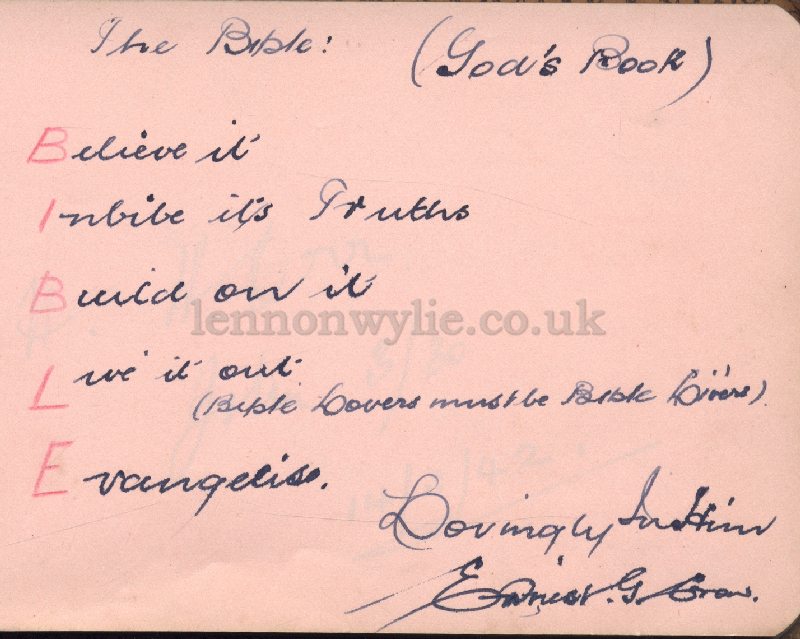 The Bible: (God's Book)
Believe it
Inbibe it's Truths
Build on it
lennonwylie.co.uk
Live it out
(Bible Lovers must be Bible Livers)
Evangelise.
Lovingly In Him
G.